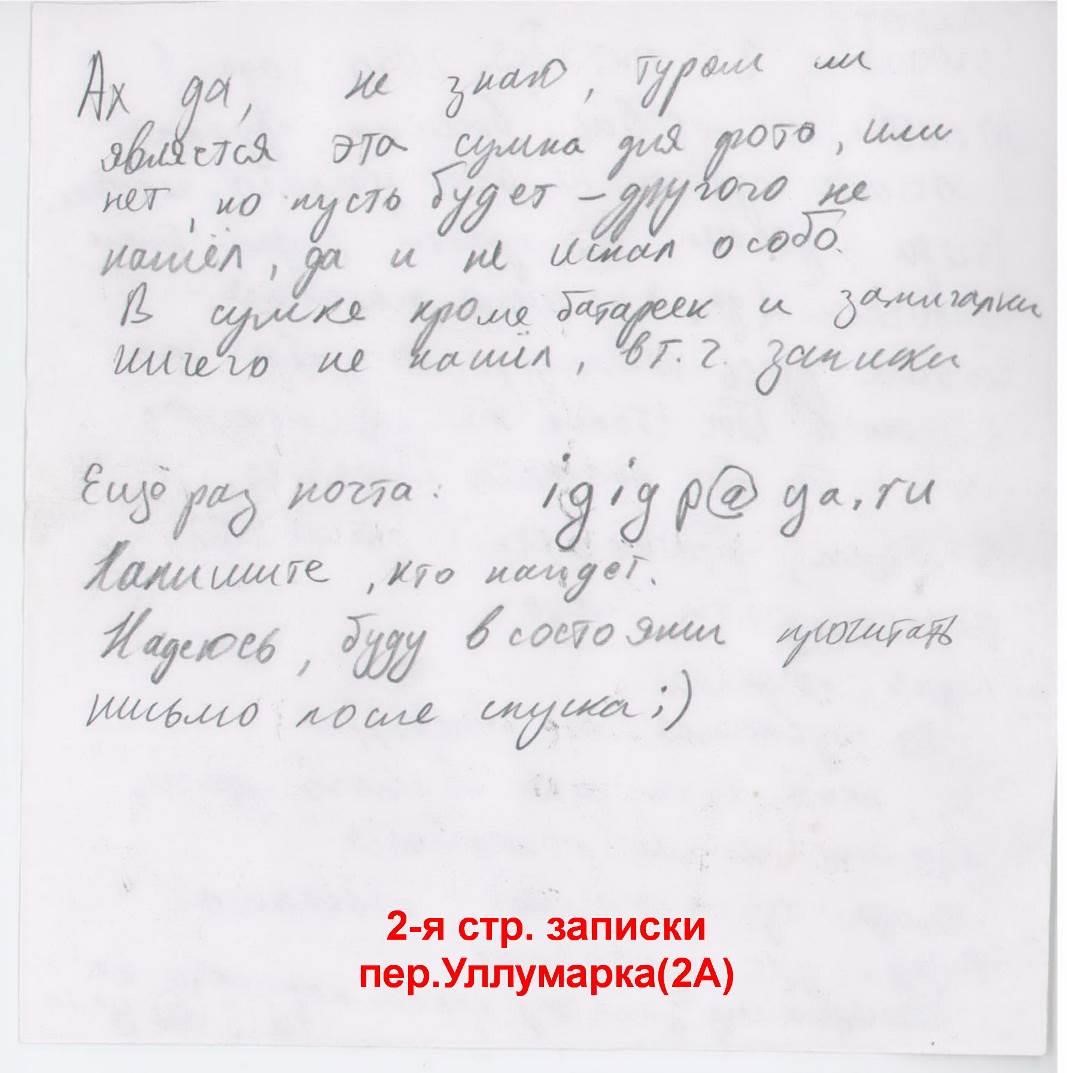 Ах да, не знаю, туром ли
является эта сумка для фото, или
нет, но пусть будет – другого не
нашёл, да и не искал особо.
В сумке кроме батареек и зажигалки
ничего не нашёл, в т.ч. записки
Ещё раз почта: igigp@ya.ru
Напишите, кто найдет.
Надеюсь, буду в состоянии прочитать
письмо после спуска ;)
2-я стр. записки
пер.Уллумарка(2А)